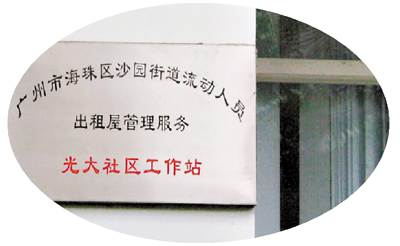 广州市海珠区沙园街道流动人员
出租屋管理服务
光大社区工作站